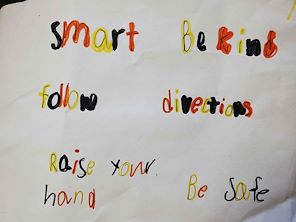 smart Be kind
follow directions
Raise your
hand Be safe